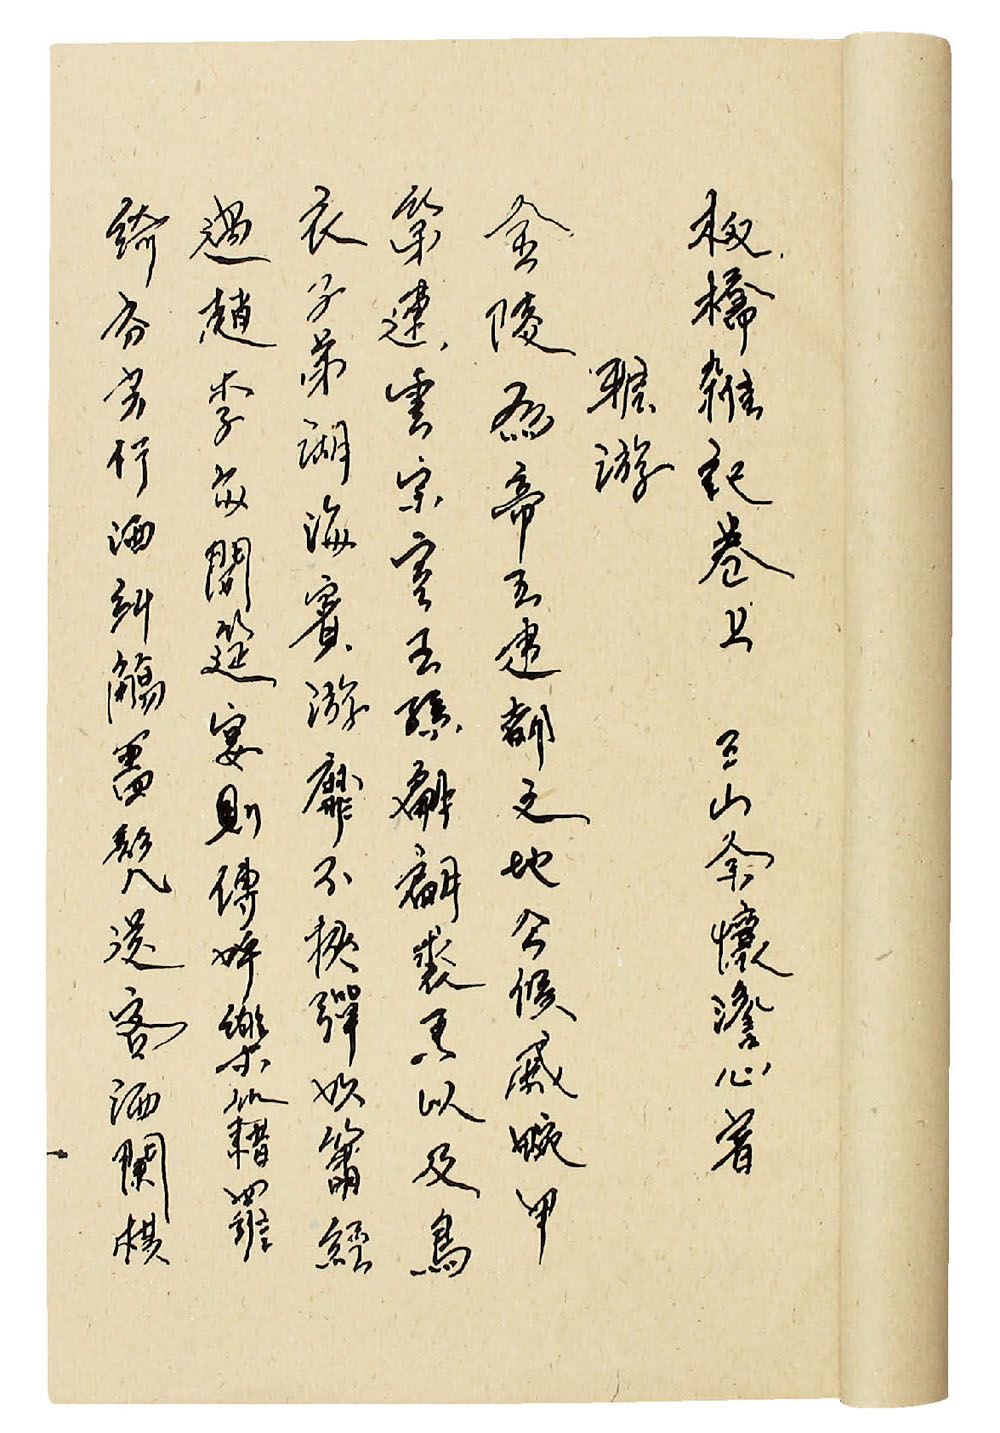 板橋雜記卷上 三山余懷澹心著
雅游
金陵爲帝王建都之地公侯戚畹甲
第連雲宗室王孫翩翩裘馬以及烏
衣子弟湖海賓游靡不挾彈吹簫經
過趙李每開筵宴則傳呼樂籍羅
綺芬芳行酒糾觴留髠送客酒闌棋